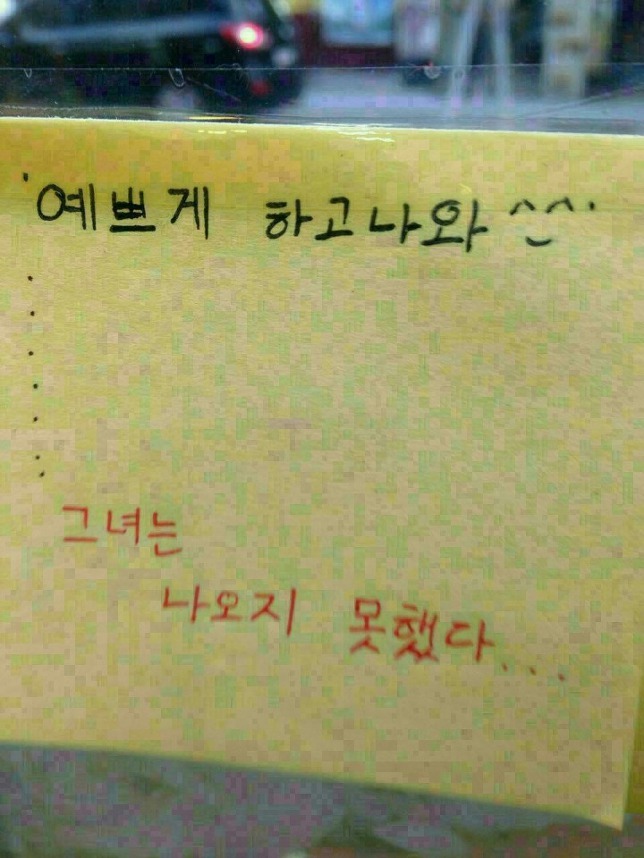 '예쁘게 하고나와^_^'
.
.
.
.
.
.
그녀는
나오지 못했다...